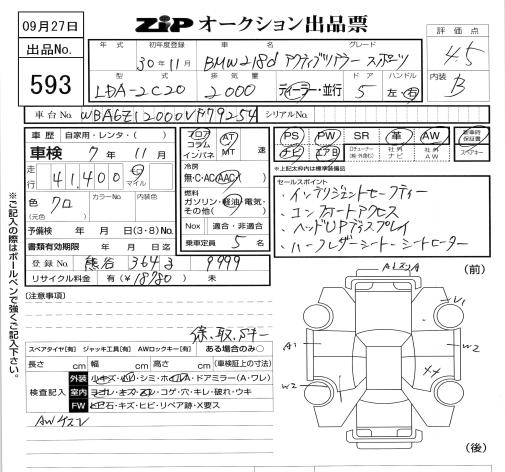 09月27日
ZIP オークション出品票
出品No.
593
年式 初年度登録 車名 グレード
30年11月 BMW218d アクティブツアラー スポーツ
型式 排気量 ドア ハンドル
LDA-2C20 2000 ディーラー・並行 5 左・右
評価点
4.5
内装
B
車台No. WBA6Z12000VF79254 シリアルNo.
車歴 自家用・レンタ・( )
車検 7年 11月
走行 41,400 km マイル
色 クロ (元色) カラーNo. 内装色
予備検 年 月 日(3・8)No.
書類有効期限 年 月 日迄
登録No. 熊谷 364 3 9999
リサイクル料金 有(¥18780) 未
フロア コラム インパネ AT MT 速
冷房
無・C・AC・AAC
燃料
ガソリン・軽油・電気・その他( )
Nox 適合・非適合
乗車定員 5名
PS PW SR 革 AW 新車時保証書
ナビ エアB 社外ナビ 社外AW
※上記太枠内は標準装備品
セールスポイント
・インテリジェントセーフティー
・コンフォートアクセス
・ヘッドUPディスプレイ
・ハーフレザーシート・シートヒーター
[注意事項]
保、取、Sキー
スペアタイヤ[有] ジャッキ工具[有] AWロックキー[有] ある場合のみ○
長さ cm 幅 cm 高さ cm (車検証上の寸法)
検査記入 外装 小キズ・凹・シミ・ホイル・ドアミラー(A・ワレ)
室内 ヨゴレ・キズ・スレ・コゲ・穴・キレ・破れ・ウキ
FW 飛石・キズ・ヒビ・リペア跡・X要ス
AWキズV
※ご記入の際はボールペンで強くご記入下さい。
(前)
V1
A1
W2
W2
(後)